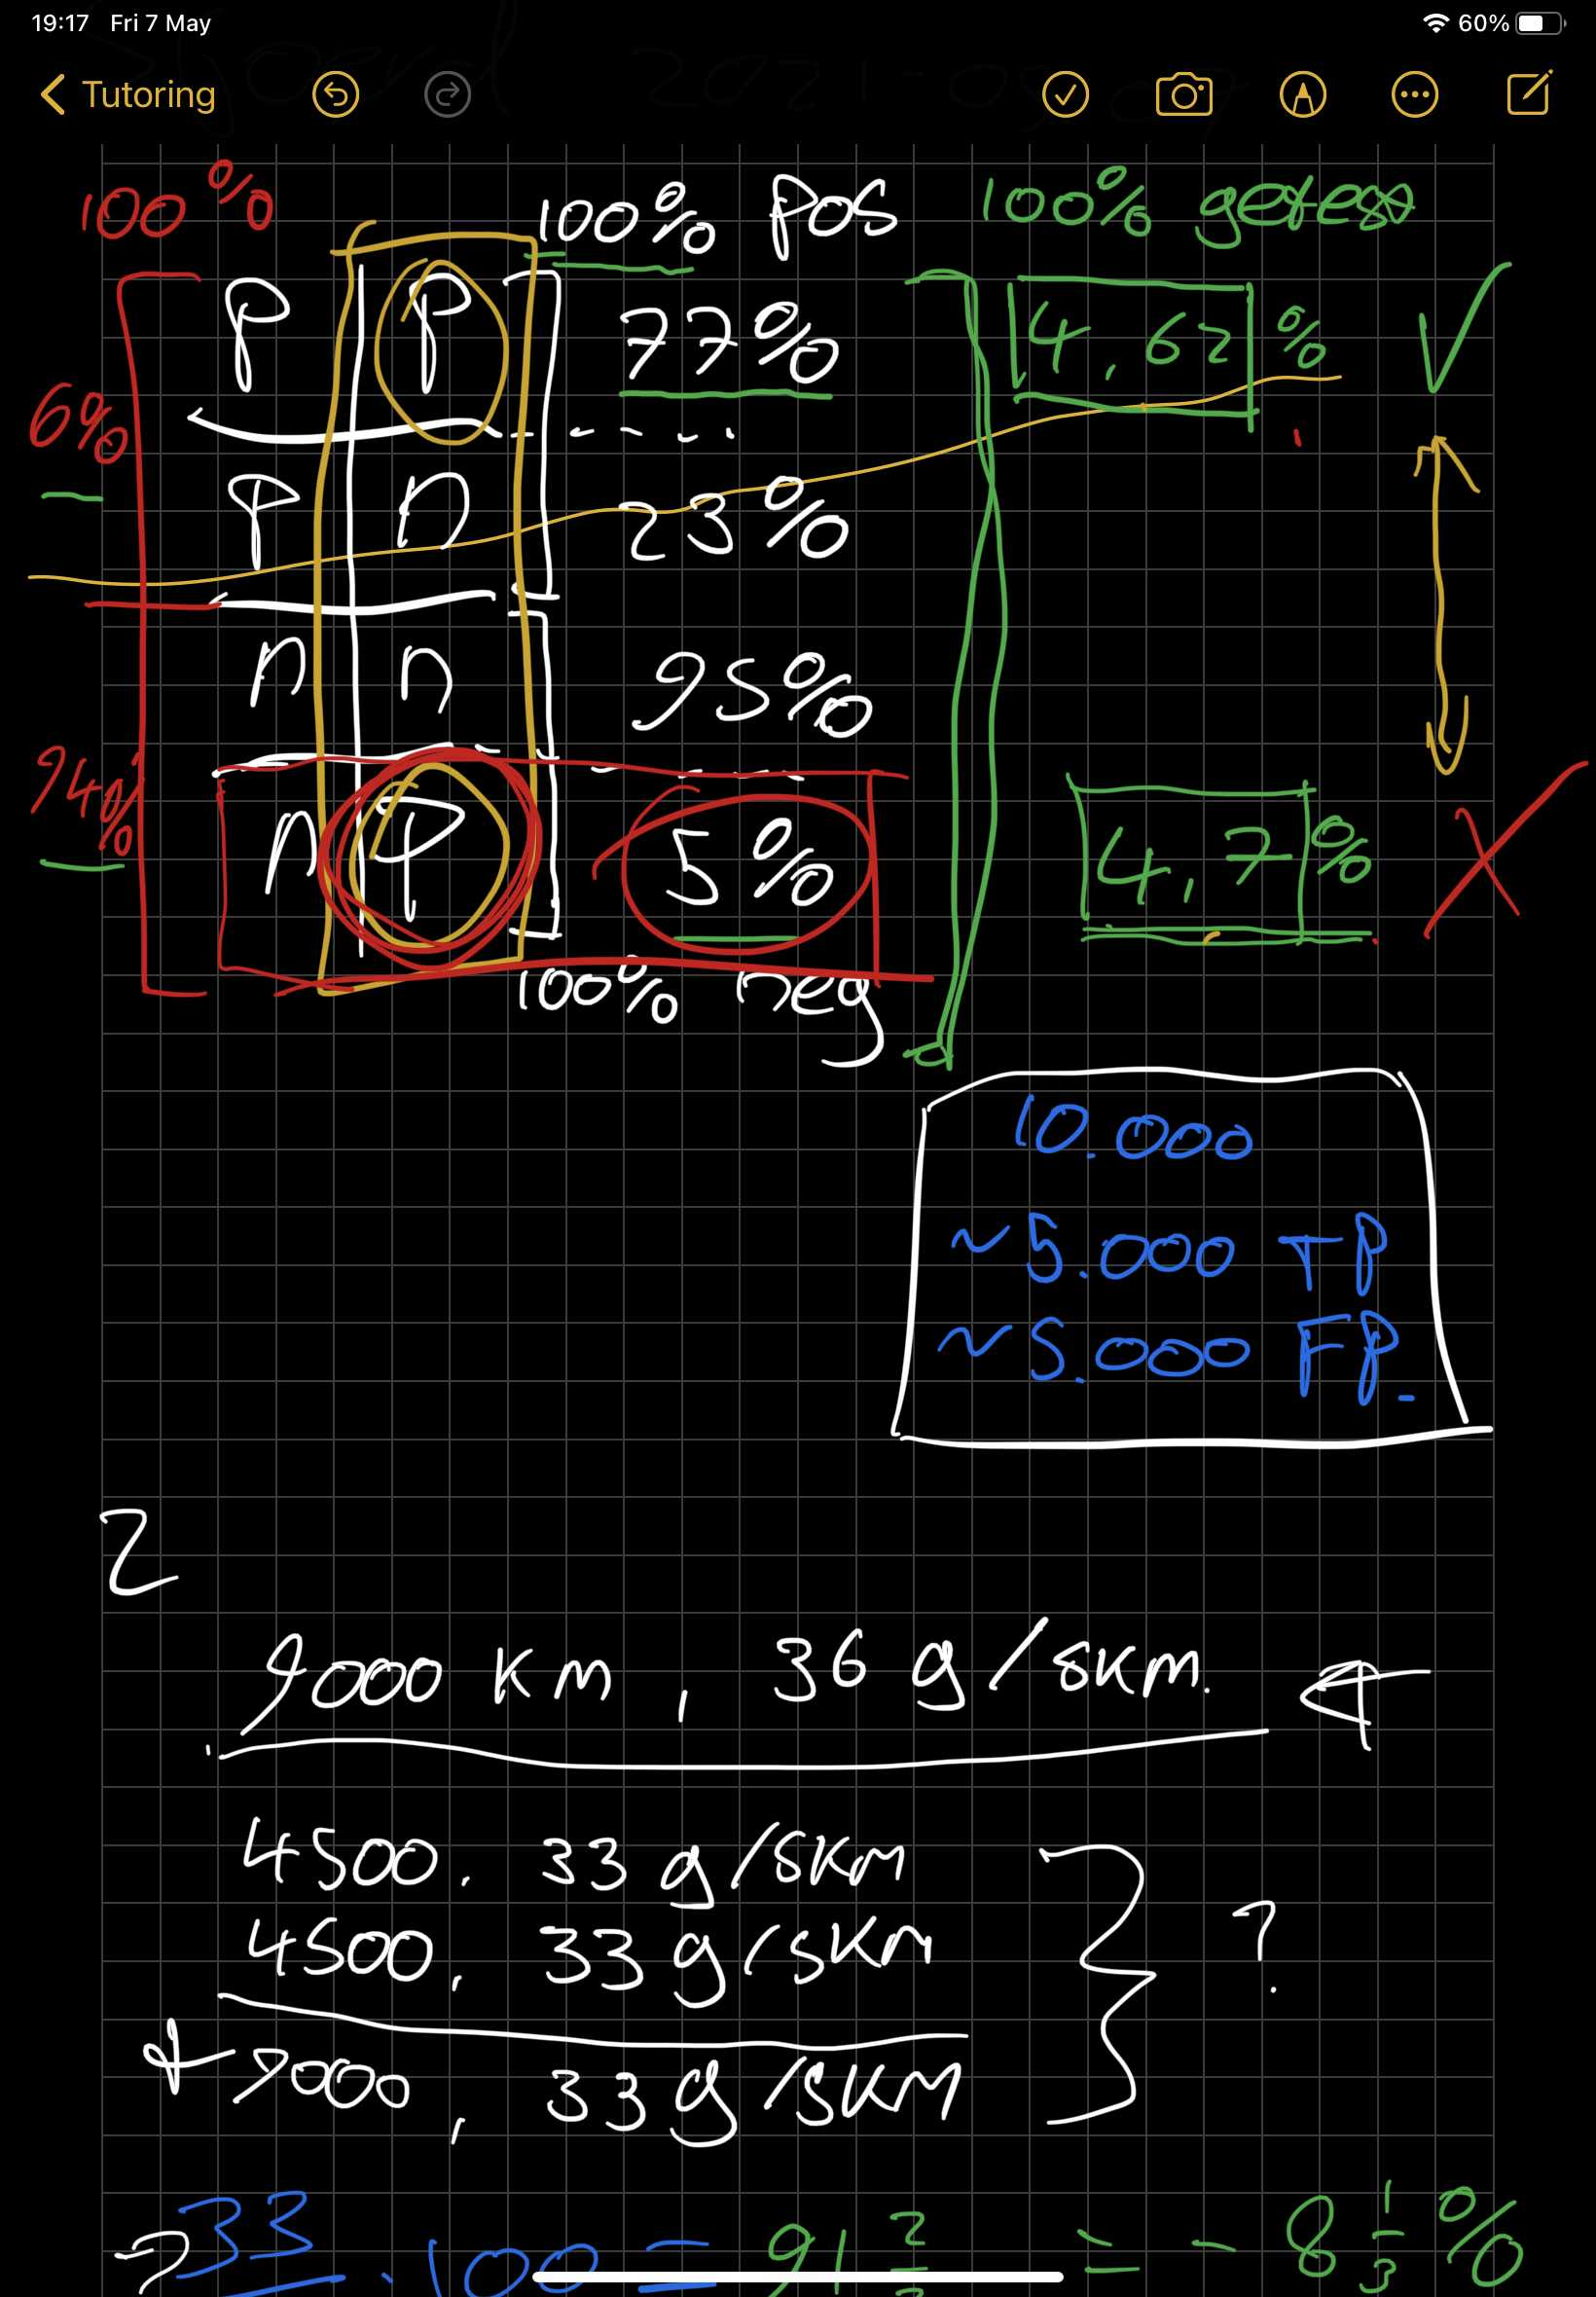 19:17 Fri 7 May 60%
Tutoring
100% 100% pos 100% getest
P P 77% 4,62%
6%
P n 23%
n n 95%
94%
n P 5% 4,7%
100% neg
10.000
~5.000 TP
~5.000 FP
2
9000 km, 36 g/skm.
4500, 33 g/skm
4500, 33 g/skm
?
+ 9000, 33 g/skm
→ 33 · 100 = 91 2 = - 8 1/3 %